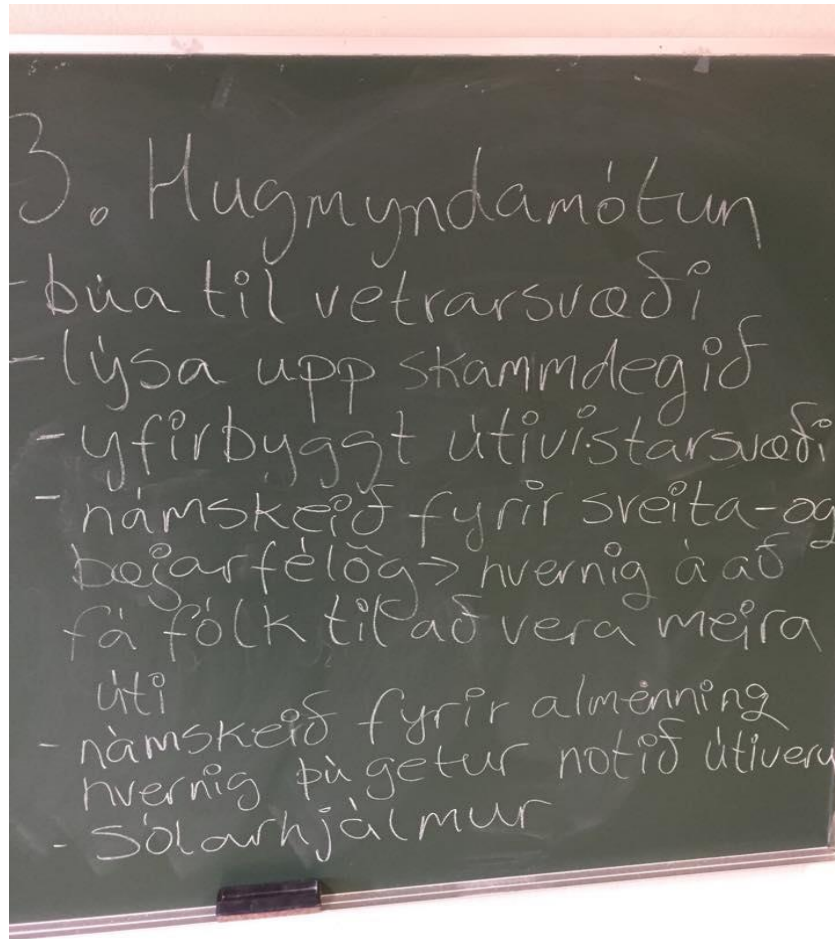 3. Hugmyndamótun
- búa til vetrarsvæði
- lýsa upp skammdegið
- yfirbyggt útivistarsvæði
- námskeið fyrir sveita-og
bæjarfélög > hvernig á að
fá fólk til að vera meira
úti
- námskeið fyrir almenning
hvernig þú getur notið útiveru
- Sólarhjálmur